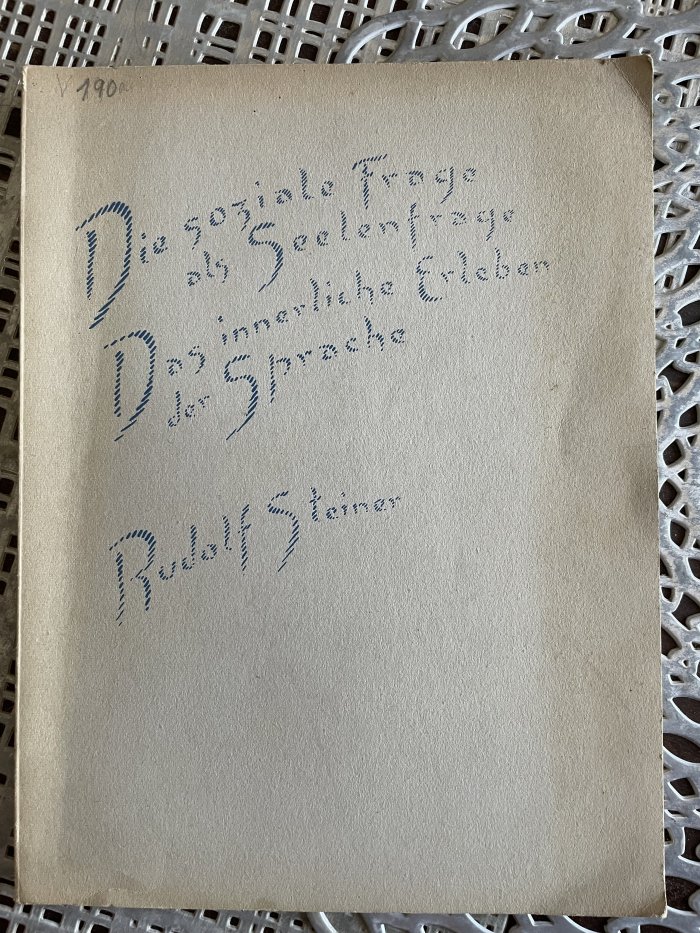 V 190a
Die soziale Frage
als Seelenfrage
Das innerliche Erleben
der Sprache
Rudolf Steiner